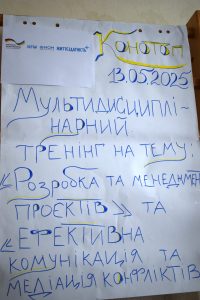 Конотоп
13.05.2025
Мультидисциплі-
нарний
тренінг на тему:
«Розробка та менеджмен
проєктів» та
«Ефективна
комунікація та
медіація конфліктів